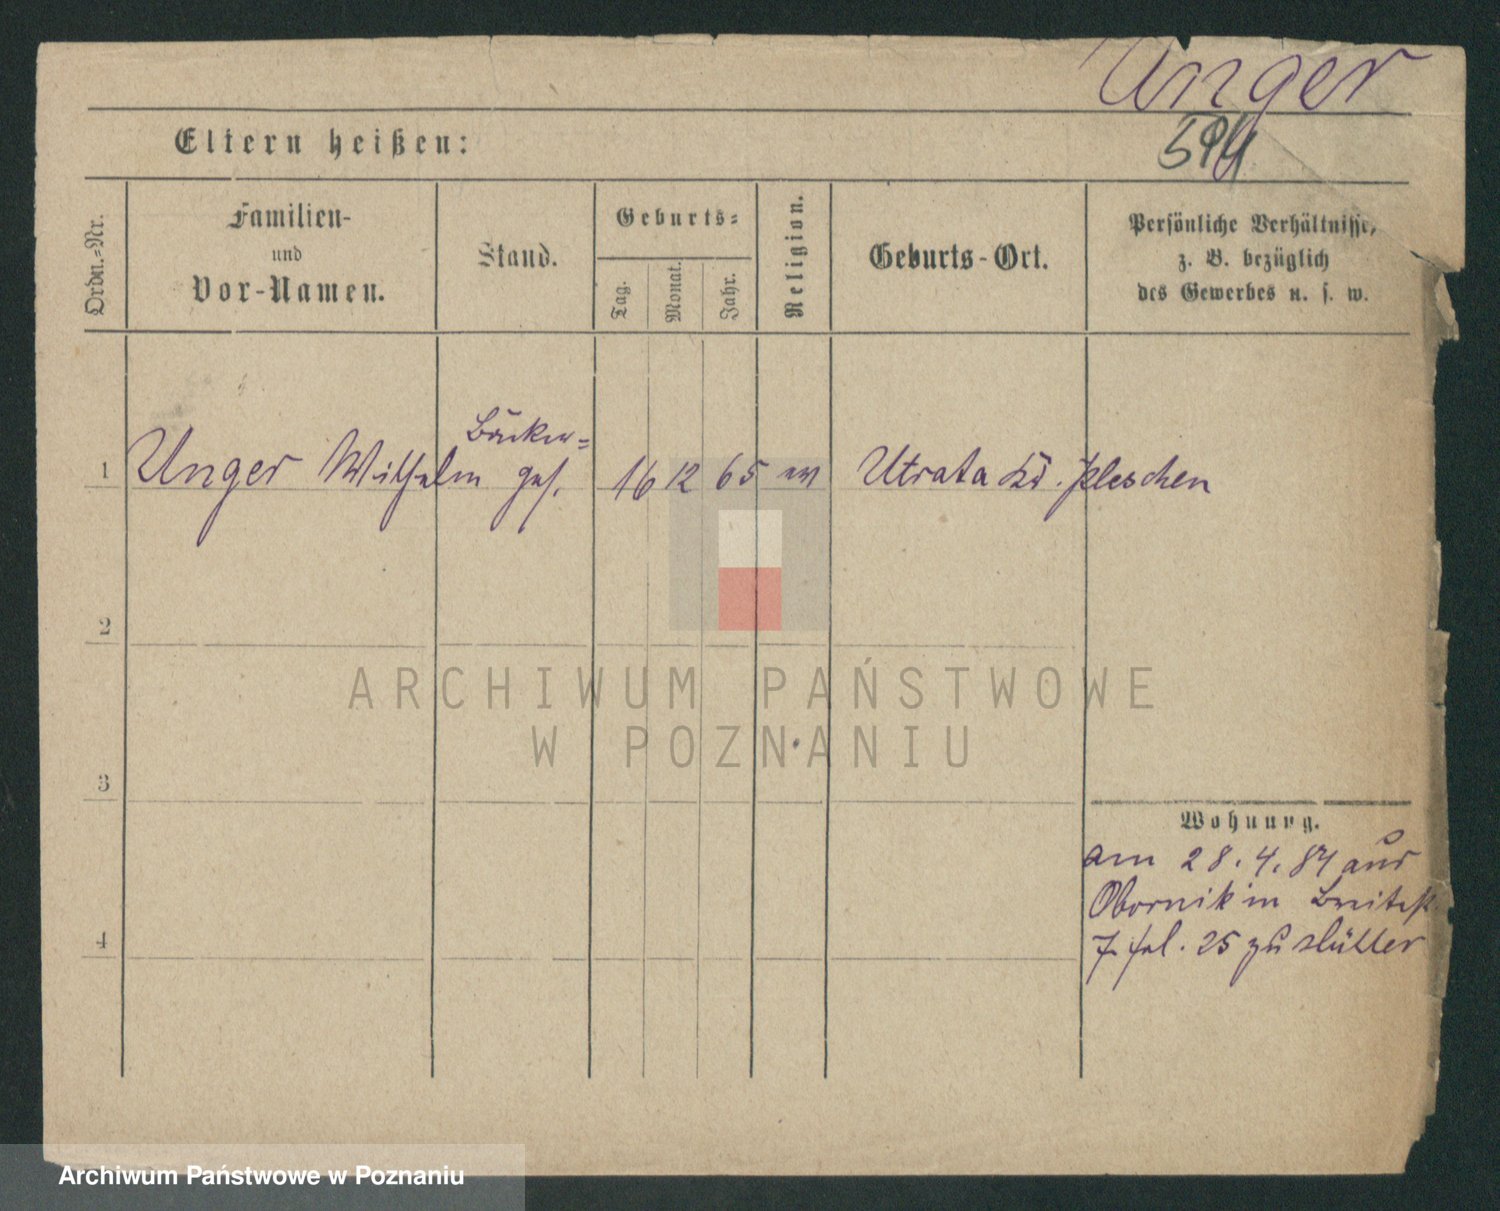 Unger
594
Eltern heißen:
Ordn.-Nr.
Familien-
und
Vor-Namen.
Stand.
Geburts-
Tag.
Monat.
Jahr.
Religion.
Geburts-Ort.
Persönliche Verhältnisse,
z. B. bezüglich
des Gewerbes u. s. w.
Bäcker-
1 Unger Wilhelm ges. 16 12 65 ev Utrata Kr. Pleschen
2
3
4
Wohnung.
am 28. 4. 84 aus
Obornik in Breitestr
7. 25 zu Müller
ARCHIWUM PAŃSTWOWE
W POZNANIU
Archiwum Państwowe w Poznaniu